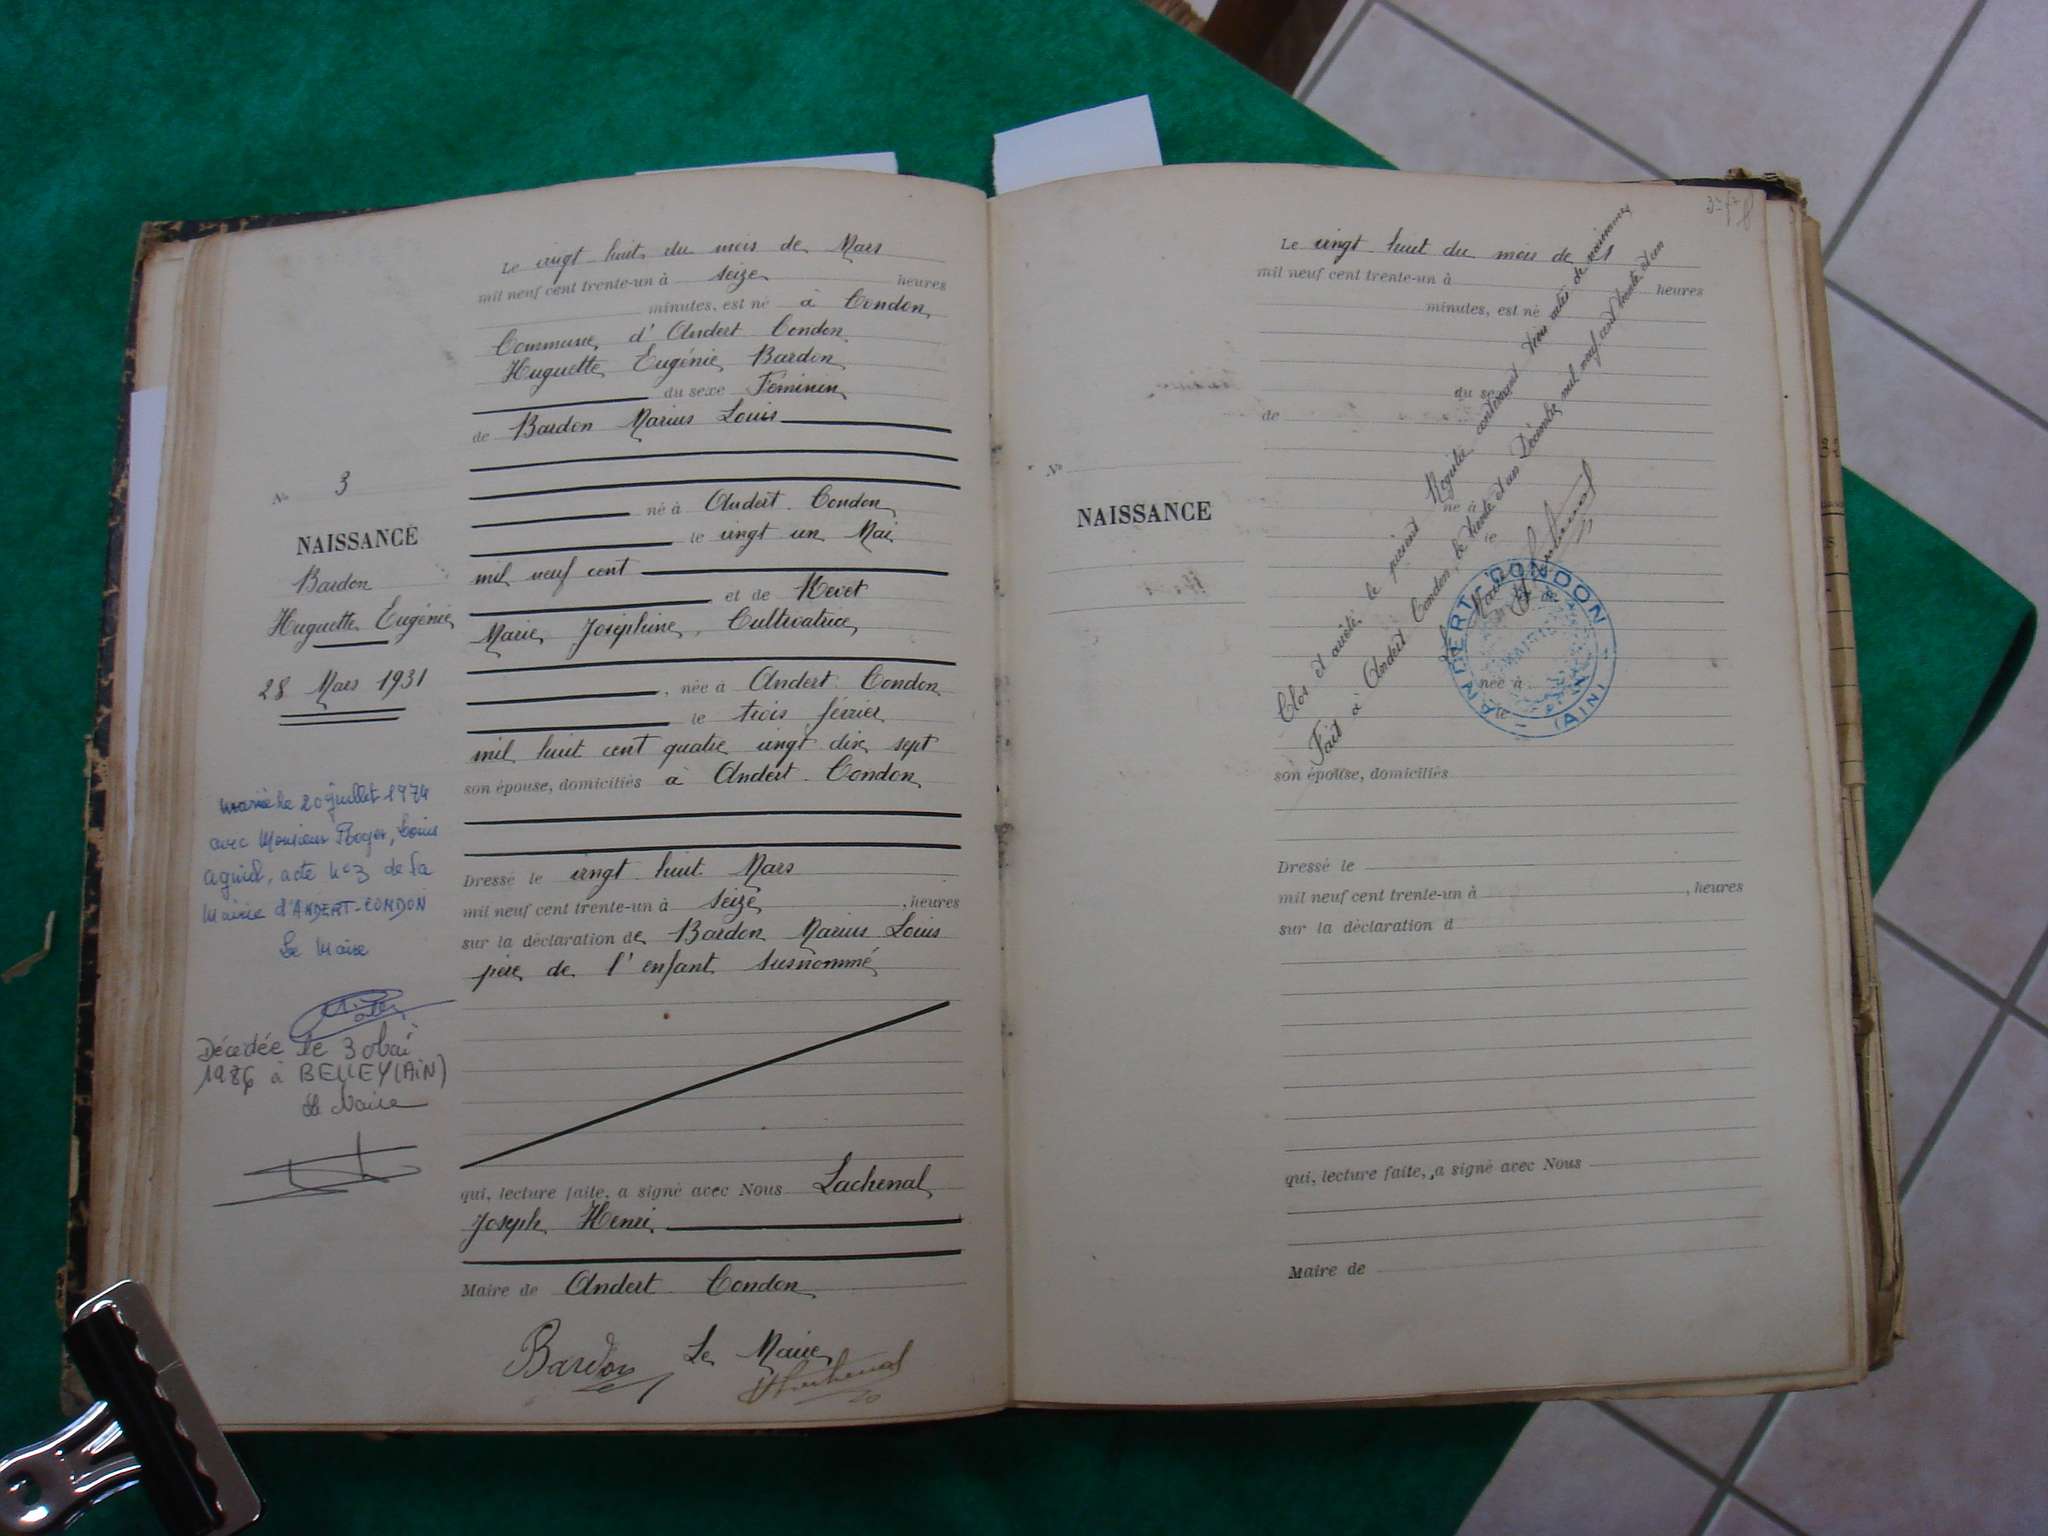 Le vingt huit du mois de Mars
mil neuf cent trente-un à seize heures
minutes, est né à Condon
Commune d'Andert Condon
Huguette Eugénie Bardon
du sexe Féminin
de Bardon Marius Louis
né à Andert. Condon
le vingt un Mai
mil neuf cent
et de Revet
Marie Joséphine, Cultivatrice
, née à Andert. Condon
le trois février
mil huit cent quatre vingt dix sept
son épouse, domiciliés à Andert. Condon
Dressé le vingt huit Mars
mil neuf cent trente-un à seize, heures
sur la déclaration de Bardon Marius Louis
père de l'enfant susnommé
qui, lecture faite, a signé avec Nous Lachenal
Joseph Henri
Maire de Andert Condon
Bardon Le Maire
Lachenal
No 3
NAISSANCE
Bardon
Huguette Eugénie
28 Mars 1931
mariée le 20 juillet 1974
avec Monsieur Roger, Louis
acte n°3 de la
Mairie d'ANDERT-CONDON
Le Maire
Décédée le 3 Mai
1986 à BELLEY (AIN)
Le Maire
Le vingt huit du mois de
mil neuf cent trente-un à heures
minutes, est né
du se
de
No
NAISSANCE
né à
le
et de
née à
le
son épouse, domiciliés
Dressé le
mil neuf cent trente-un à , heures
sur la déclaration d
qui, lecture faite, a signé avec Nous
Maire de
Clos et arrêté le présent Registre contenant trois actes de naissances
Fait à Andert Condon, le trente et un Décembre mil neuf cent trente et un
Le Maire
Lachenal
ANDERT-CONDON
MAIRIE
(AIN)